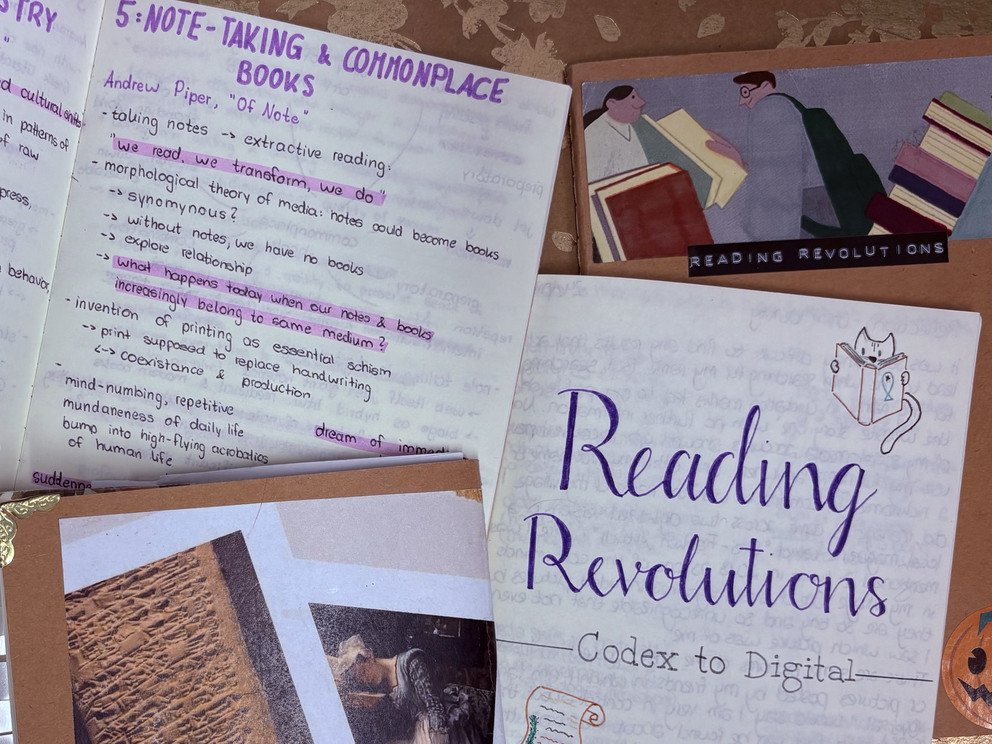 STRY
"
d cultural shifts
in patterns of
of raw
press,
behavior
5: NOTE-TAKING & COMMONPLACE
BOOKS
Andrew Piper, "Of Note"
- taking notes -> extractive reading:
"we read, we transform, we do"
- morphological theory of media: notes could become books
-> synomynous?
-> without notes, we have no books
-> explore relationship
-> what happens today when our notes & books
increasingly belong to same medium?
- invention of printing as essential schism
-> print supposed to replace handwriting
<-> coexistance & production
- mind-numbing, repetitive
mundaneness of daily life
bump into high-flying acrobatics
of human life
dream of immed
suddenne
READING REVOLUTIONS
Reading
Revolutions
Codex to Digital